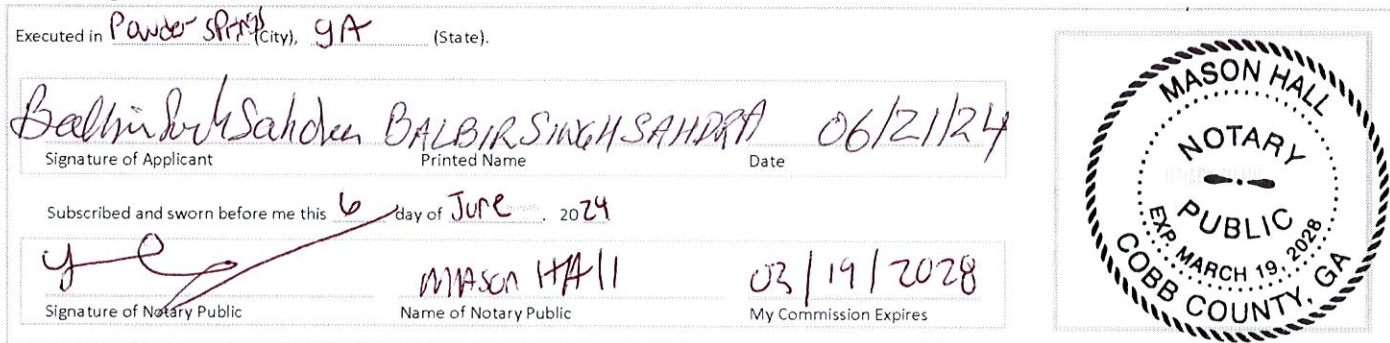 Executed in Powder Springs (City), GA (State).
Balbir Singh Sahdra BALBIR SINGH SAHDRA 06/21/24
Signature of Applicant Printed Name Date
Subscribed and sworn before me this 6 day of June, 2024
MASON HAll 03/19/2028
Signature of Notary Public Name of Notary Public My Commission Expires
MASON HALL
NOTARY
PUBLIC
EXP. MARCH 19, 2028
COBB COUNTY, GA